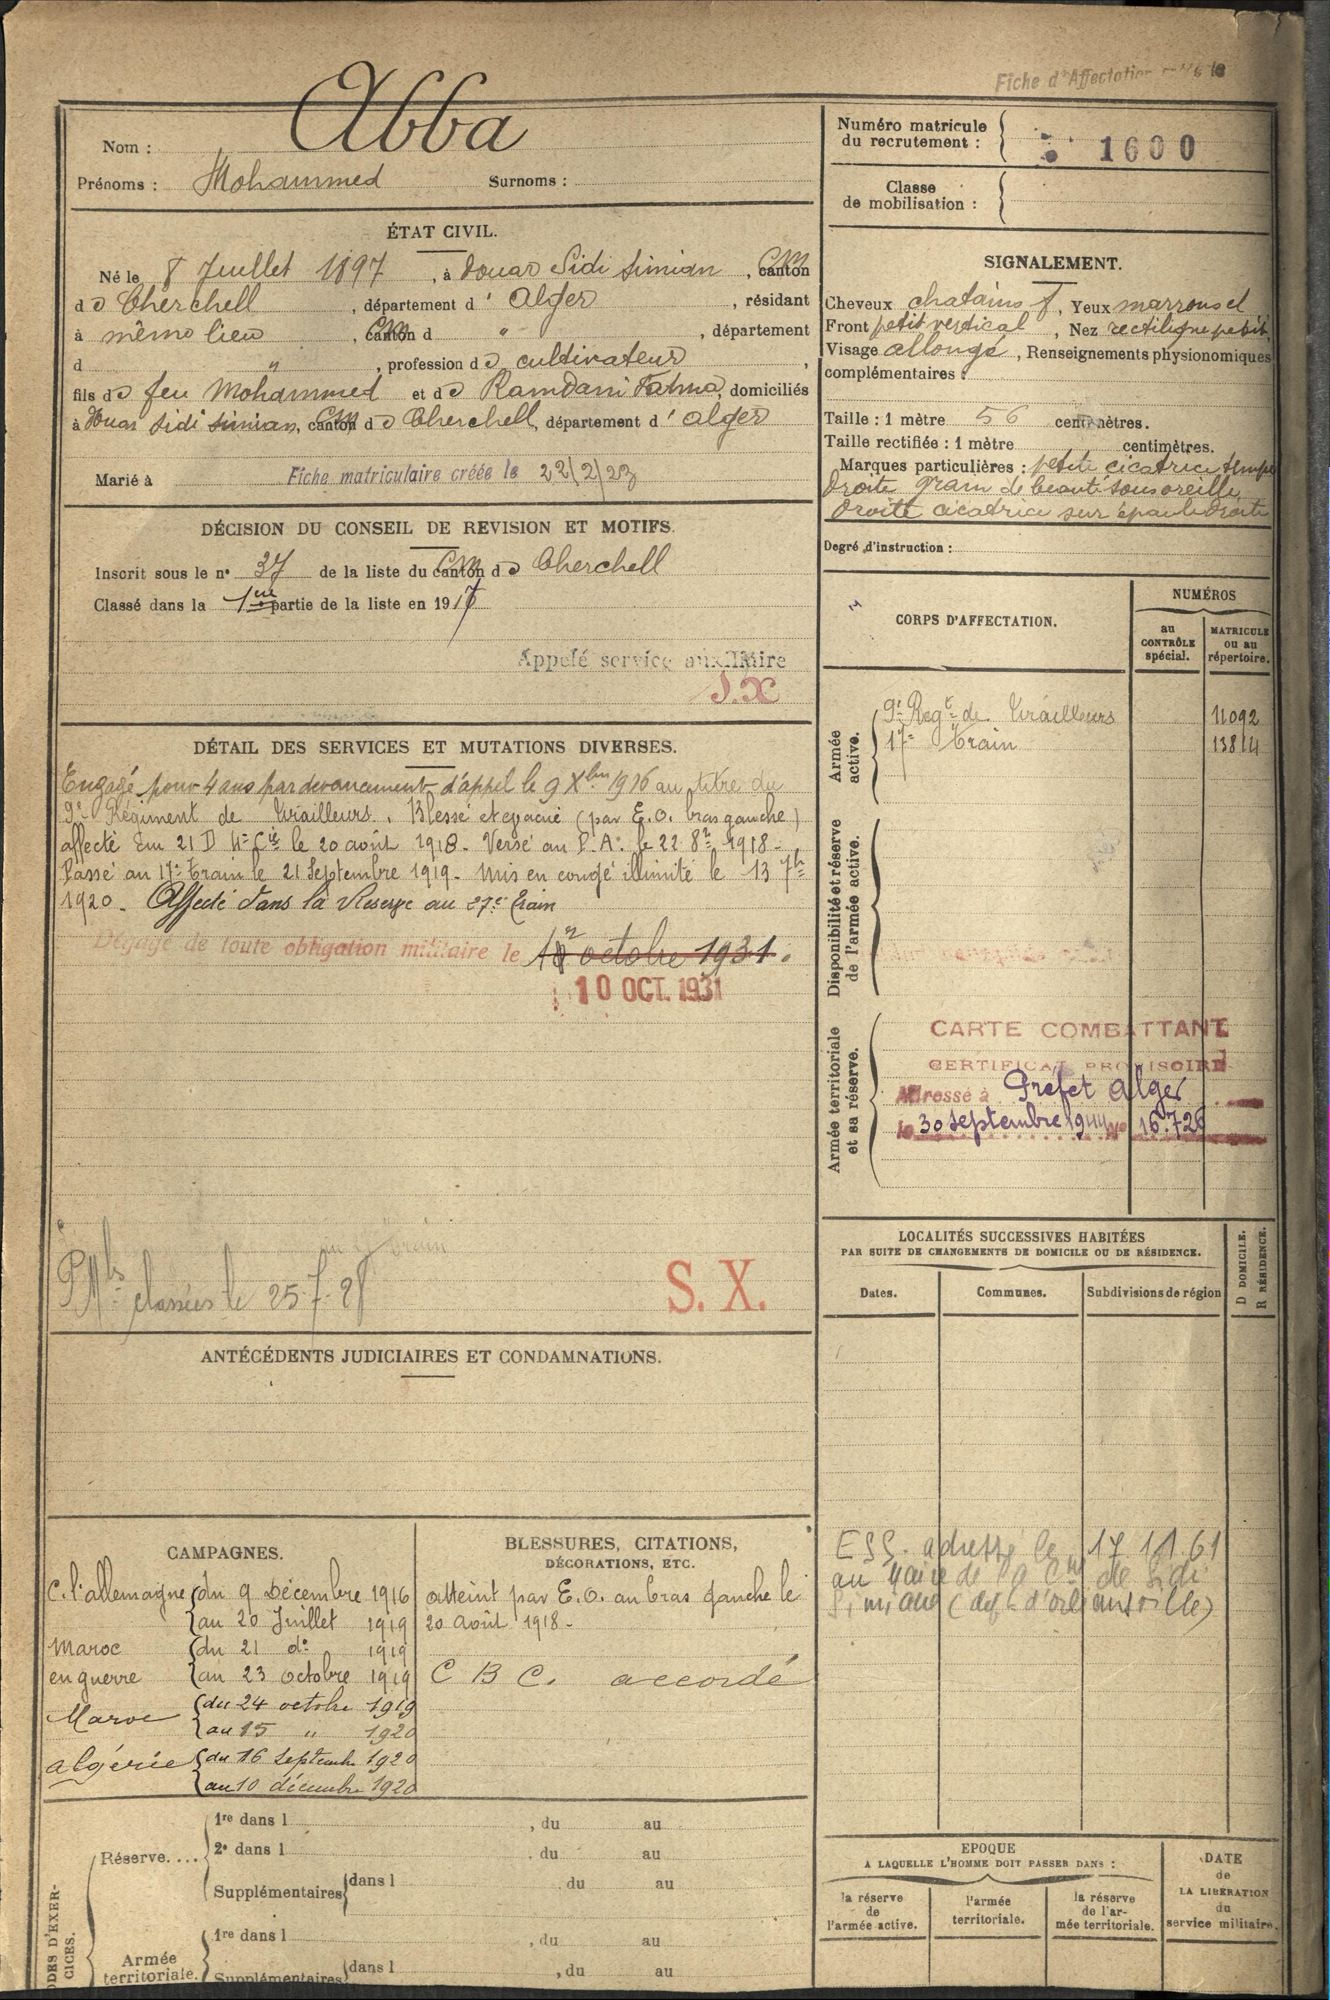 Fiche d'Affectation
Nom : Abba
Prénoms : Mohammed Surnoms :
Numéro matricule
du recrutement : 1600
Classe
de mobilisation :
ÉTAT CIVIL.
Né le 8 Juillet 1897, à douar Sidi Simian, canton CM
d e Cherchell, département d' Alger, résidant
à même lieu, canton CM d ", département
d ", profession de cultivateur,
fils de feu Mohammed et de Ramdani Fatma, domiciliés
à douar Sidi Simian, canton CM de Cherchell, département d' Alger
Marié à Fiche matriculaire créée le 22/2/23
SIGNALEMENT.
Cheveux chatains f, Yeux marrons cl
Front petit vertical, Nez rectiligne petit,
Visage allongé, Renseignements physionomiques
complémentaires :
Taille : 1 mètre 56 centimètres.
Taille rectifiée : 1 mètre centimètres.
Marques particulières : petite cicatrice tempe
droite grain de beauté sous oreille
droite cicatrice sur épaule droite
Degré d'instruction :
DÉCISION DU CONSEIL DE REVISION ET MOTIFS.
Inscrit sous le n° 37 de la liste du canton CM de Cherchell
Classé dans la 1ere partie de la liste en 1917
Appelé service auxiliaire
S.X
CORPS D'AFFECTATION.
NUMÉROS
au
CONTRÔLE
spécial.
MATRICULE
ou au
répertoire.
Armée
active.
9e Regt de Tirailleurs 11092
17e Train 13814
Disponibilité et réserve
de l'armée active.
Armée territoriale
et sa réserve.
CARTE COMBATTANT
CERTIFICAT PROVISOIRE
Adressé à Préfet Alger
le 30 septembre 1944 No 16.726
DÉTAIL DES SERVICES ET MUTATIONS DIVERSES.
Engagé pour 4 ans par devancement d'appel le 9 Xbre 1916 au titre du
9e Régiment de Tirailleurs. Blessé et évacué (par E.O. bras gauche)
affecté Em 21 D 4e Cie le 20 août 1918. Versé au D.A. le 22 8re 1918 -
Passé au 17e Train le 21 Septembre 1919. Mis en congé illimité le 13 7bre
1920. Affecté dans la Réserve au 27e Train
Dégagé de toute obligation militaire le octobre 1931.
10 OCT. 1931
classées le 25-7-28
S. X.
LOCALITÉS SUCCESSIVES HABITÉES
PAR SUITE DE CHANGEMENTS DE DOMICILE OU DE RÉSIDENCE.
Dates. Communes. Subdivisions de région
D DOMICILE.
R RÉSIDENCE.
ESS. adressé le 17 11 61
au Maire de la Cne de Sidi
Simiane (dept d'orléansville)
ANTÉCÉDENTS JUDICIAIRES ET CONDAMNATIONS.
CAMPAGNES.
C. l'allemagne du 9 Décembre 1916
au 20 Juillet 1919
Maroc du 21 do 1919
en guerre au 23 octobre 1919
Maroc du 24 octobre 1919
au 15 " 1920
algérie du 16 Septembre 1920
au 10 décembre 1920
BLESSURES, CITATIONS,
DÉCORATIONS, ETC.
atteint par E.O. au bras gauche le
20 août 1918 -
C B C. accordé
ODES D'EXER-
CICES.
Réserve....
1re dans l , du au
2e dans l , du au
Supplémentaires dans l , du au
Armée
territoriale.
1re dans l , du au
Supplémentaires dans l , du au
EPOQUE
A LAQUELLE L'HOMME DOIT PASSER DANS :
la réserve
de
l'armée active.
l'armée
territoriale.
la réserve
de l'ar-
mée territoriale.
DATE
de
LA LIBERATION
du
service militaire.